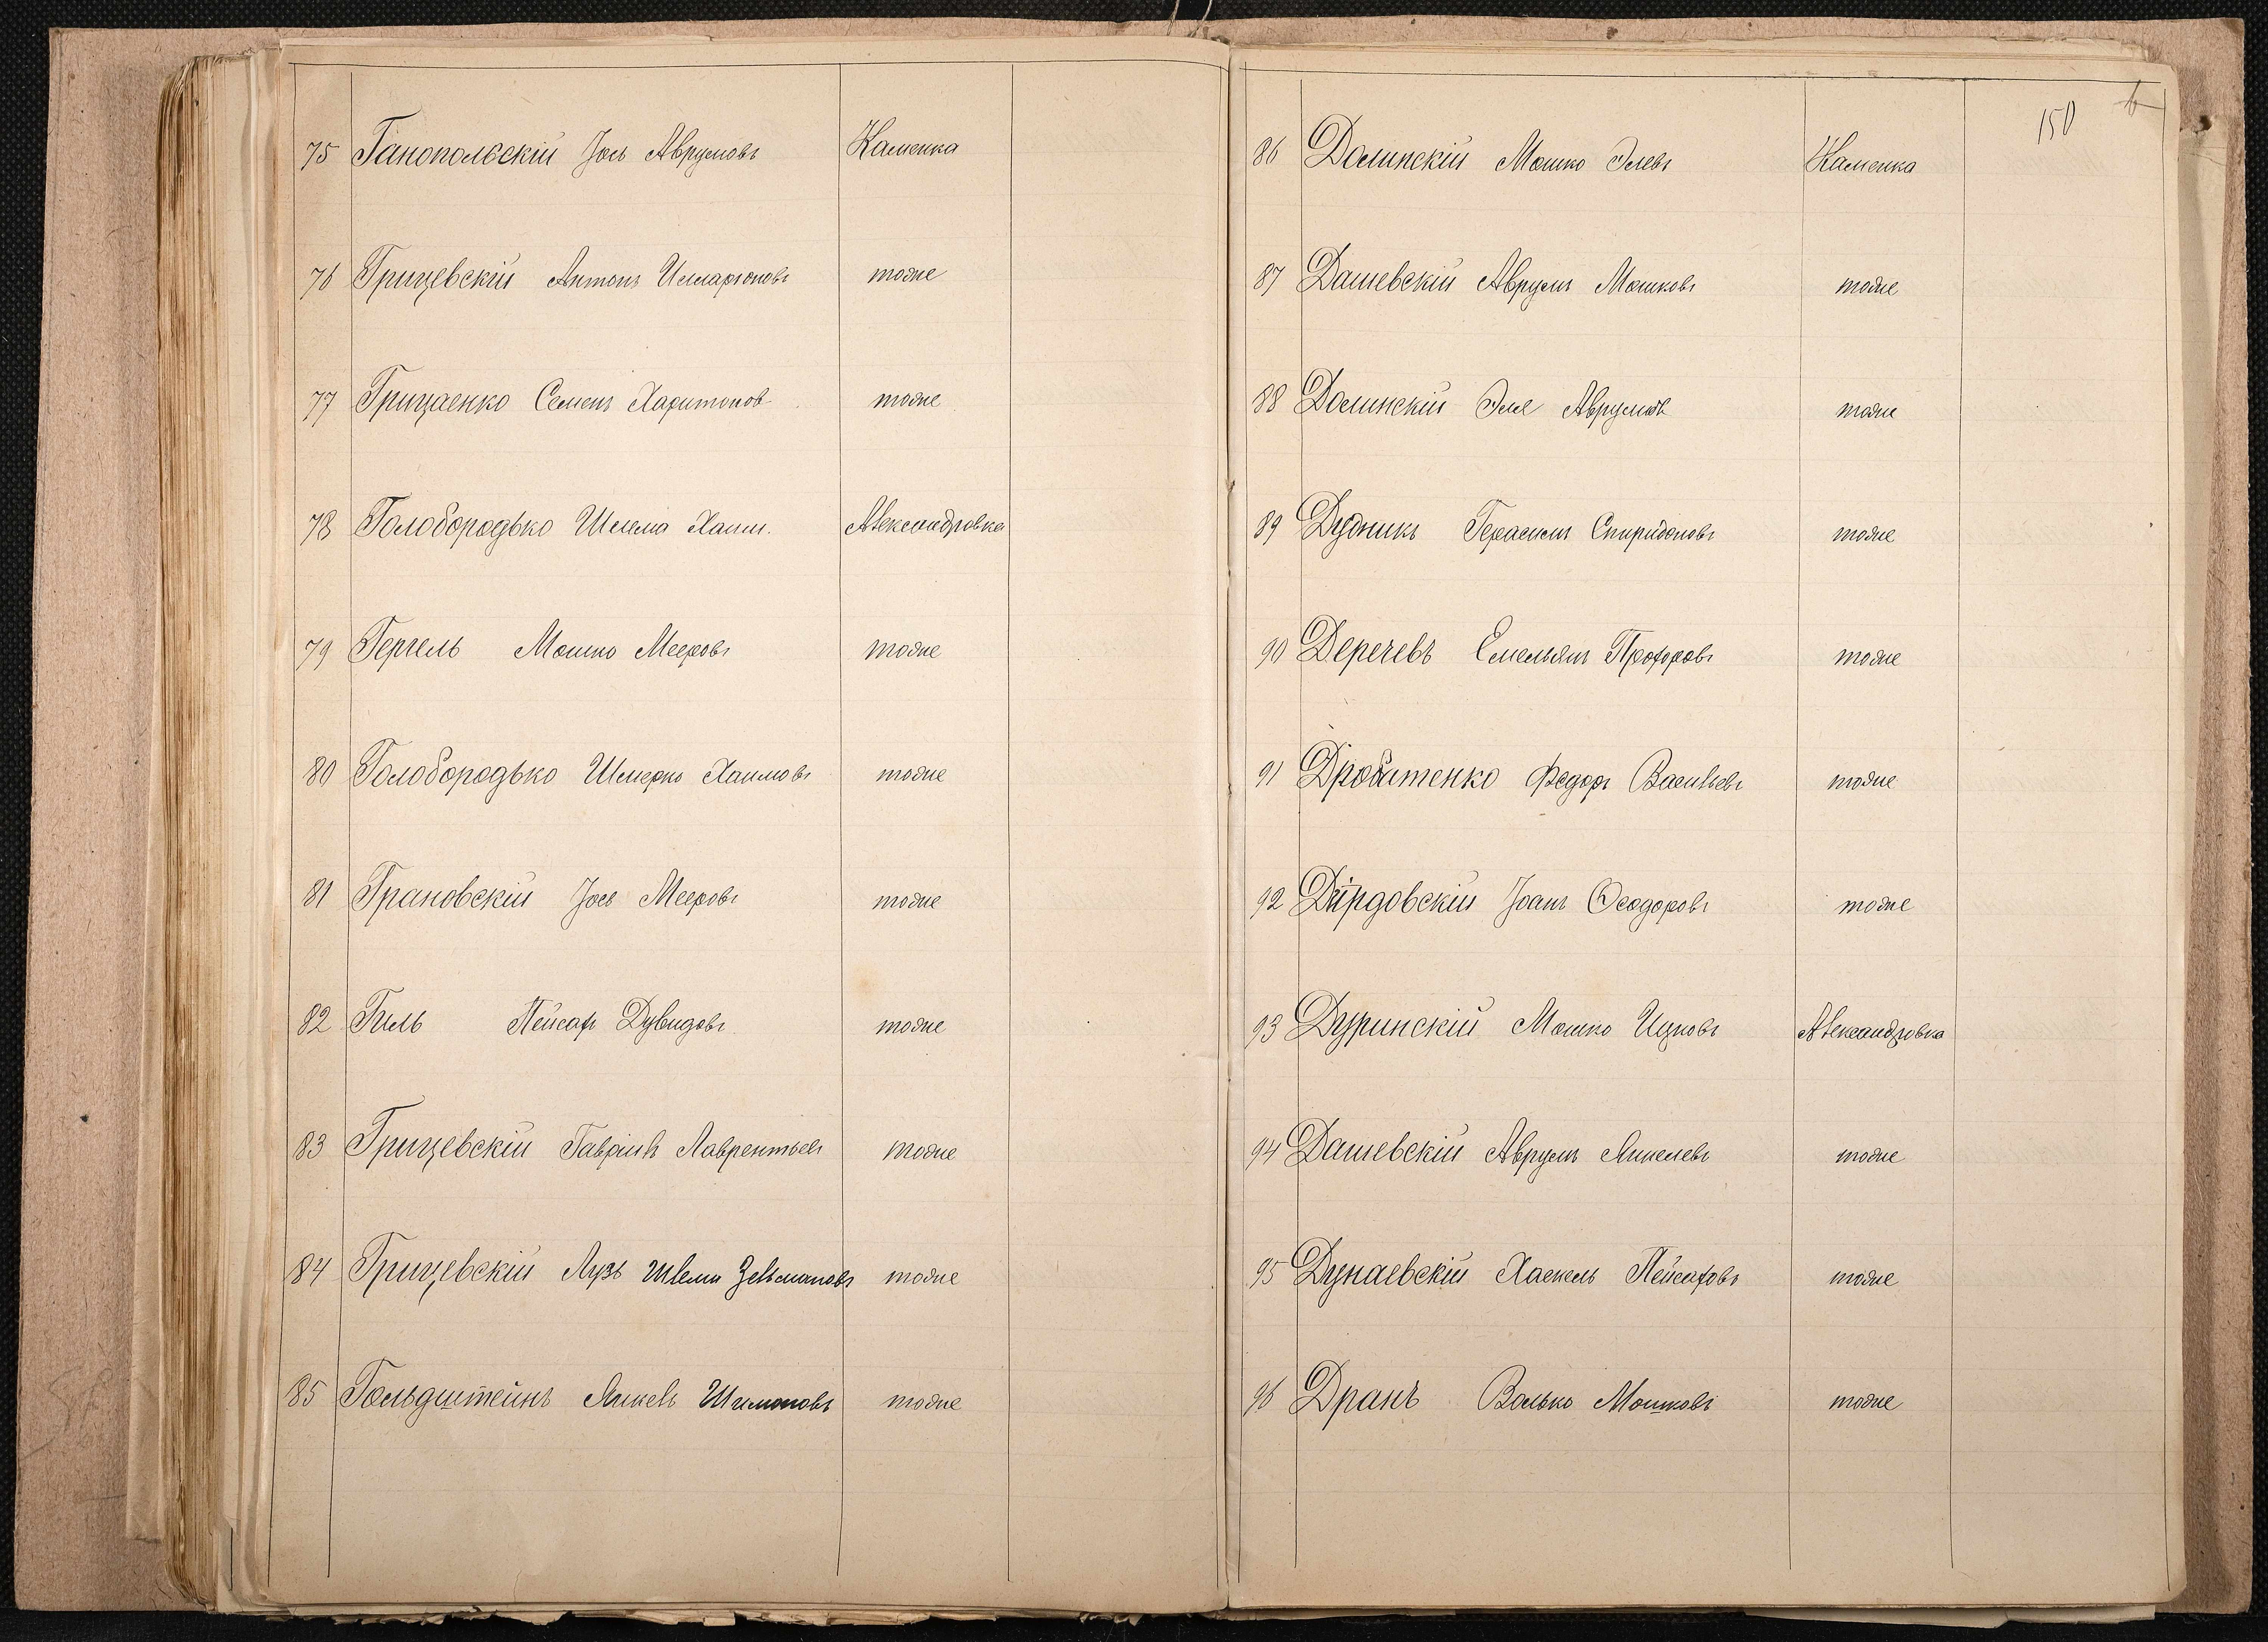 75 Ганопольскій Іось Аврумовъ Каменка
76 Грицевскій Антонъ Илларіоновъ тоже
77 Грицаенко Семенъ Харитонов тоже
78 Голобородько Шлема Хаим. Александровка
79 Гергель Мошко Мееровъ тоже
80 Голобородько Шмерко Хаимовъ тоже
81 Грановскій Іось Мееровъ тоже
82 Гиль Пейсах Дувидовъ тоже
83 Грицевскій Гавріилъ Лаврентьевъ тоже
84 Грицевскій Лузъ Шлема Зельмановъ тоже
85 Гольдштейнъ Янкель Шимоновъ тоже
150
86 Долинскій Мошко Элевъ Каменка
87 Дашевскій Аврумъ Мошковъ тоже
88 Долинскій Эле Аврумов тоже
89 Дудникъ Герасимъ Спиридоновъ тоже
90 Деречевъ Емельянъ Прохоровъ тоже
91 Дробитенко Федоръ Васильевъ тоже
92 Дирдовскій Іоанъ Ѳеодоровъ тоже
93 Дуринскій Мошко Ицковъ Александровка
94 Дашевскій Аврумъ Янкелевъ тоже
95 Дунаевскій Хаскель Пейсаховъ тоже
96 Дранъ Волько Мошковъ тоже